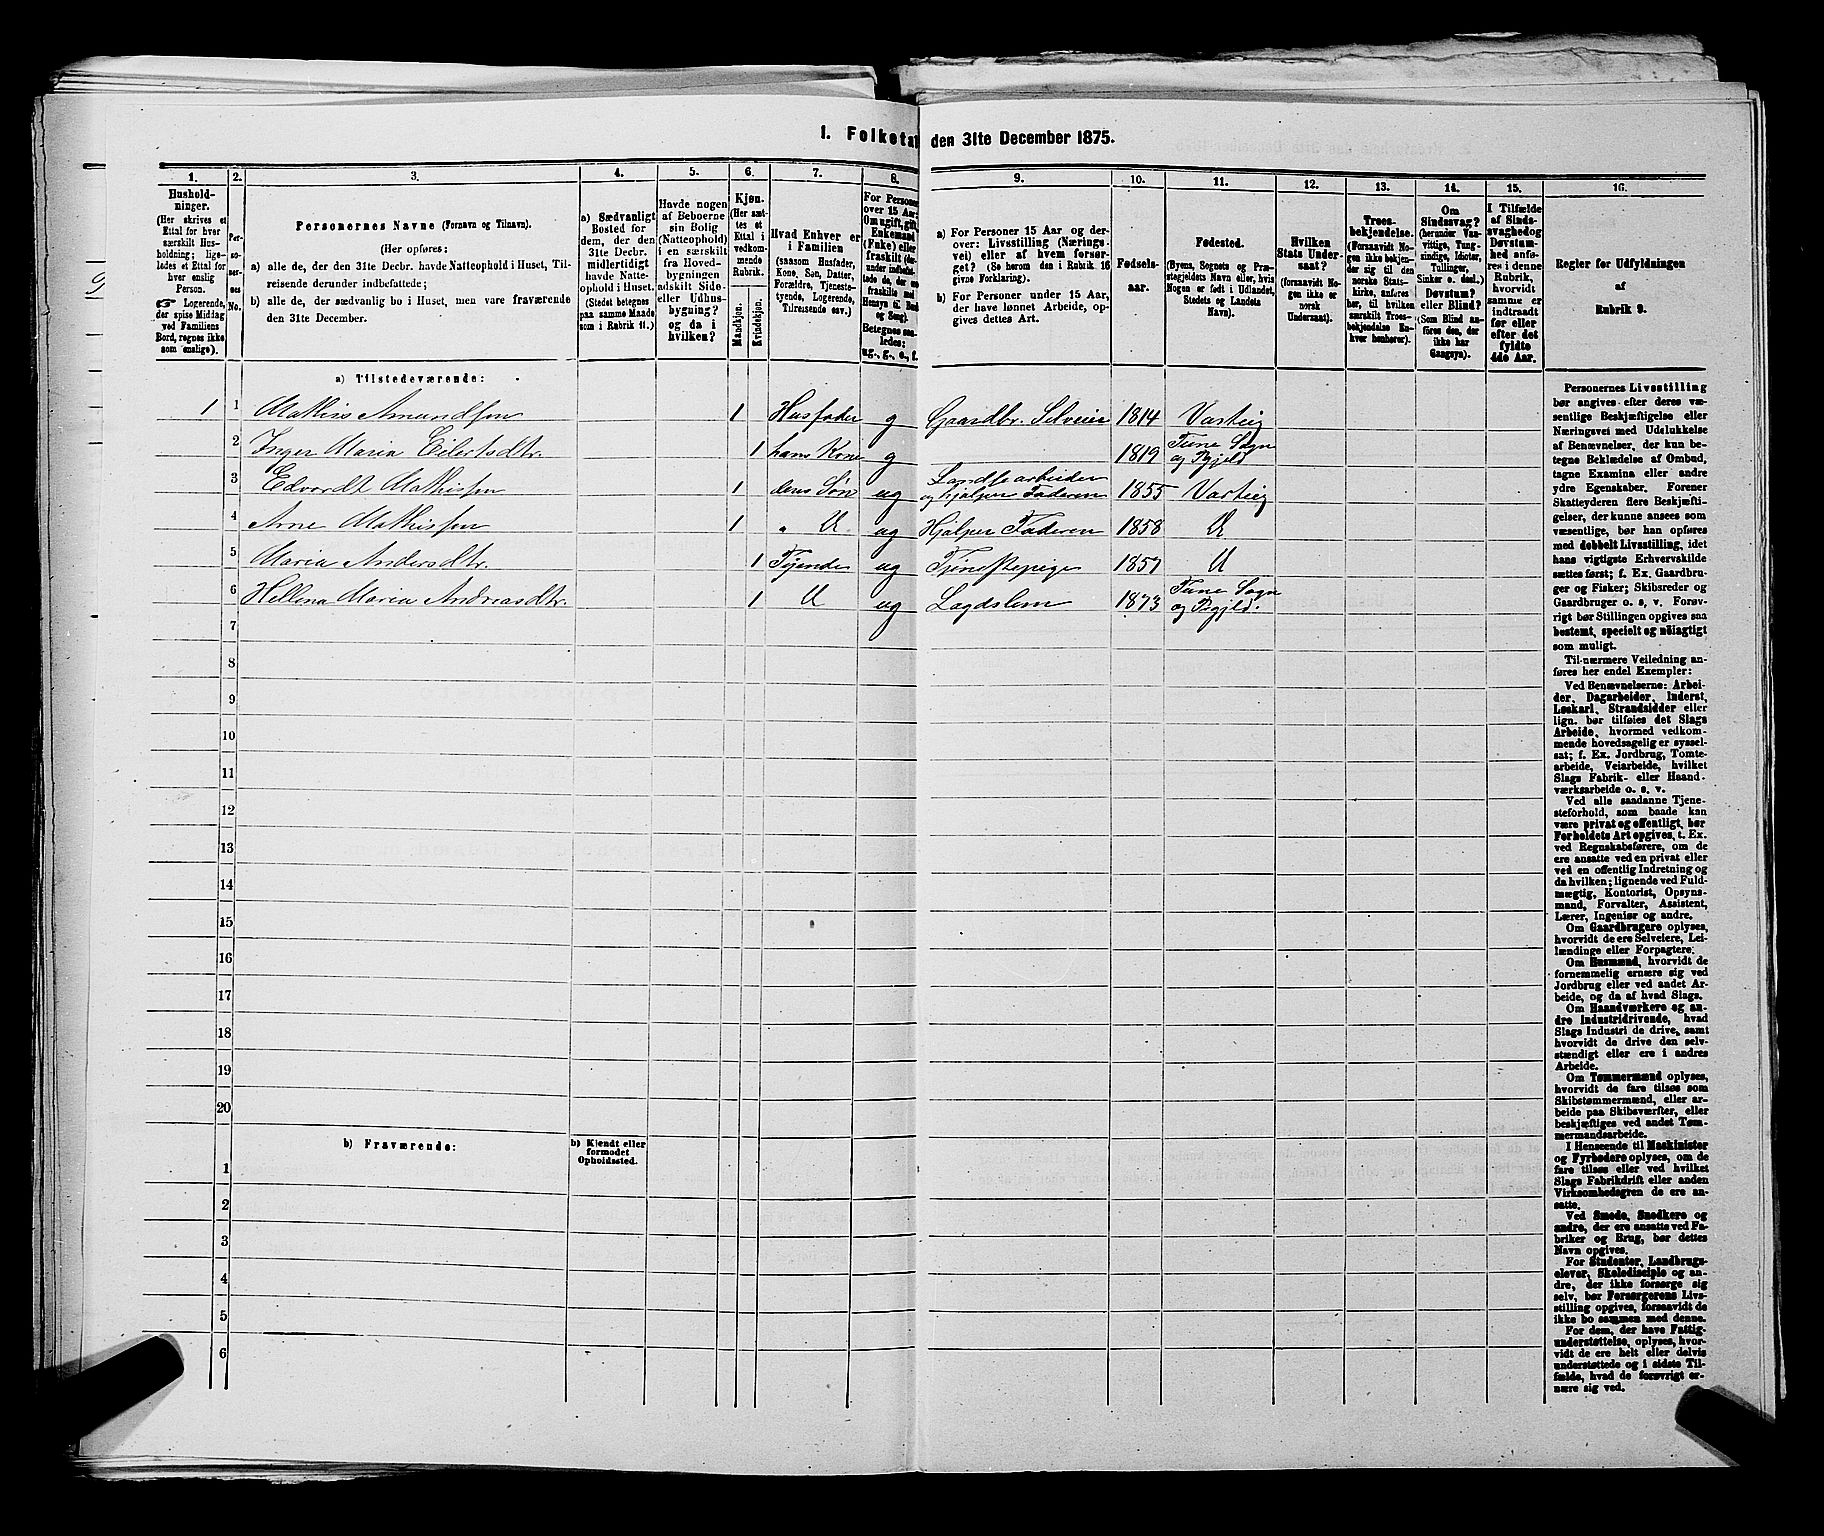 1. Folketæ den 31te December 1875.
1.
Hushold-
ninger.
(Her skrives et
Ettal for hver
særskilt Hus-
holdning; lige-
ledes et Ettal for
hver enslig
Person.
☞ Logerende,
der spise Middag
ved Familiens
Bord, regnes ikke
som enslige).
2.
Per-
so-
ner-
nes
No.
3.
Personernes Navne (Fornavn og Tilnavn).
(Her opføres:
a) alle de, der den 31te Decbr. havde Natteophold i Huset, Til-
reisende derunder indbefattede;
b) alle de, der sædvanlig bo i Huset, men vare fraværende
den 31te December.
4.
a) Sædvanligt
Bosted for
dem, der den
31te Decbr.
midlertidigt
havde Natte-
ophold i Huset.
(Stedet betegnes
paa samme Maade
som i Rubrik 11.)
5.
Havde nogen
af Beboerne
sin Bolig
(Natteophold)
i en særskilt
fra Hoved-
bygningen
adskilt Side-
eller Udhus-
bygning?
og da i
hvilken?
6.
Kjøn.
(Her sæt-
tes et
Ettal i
vedkom-
mende
Rubrik.
Mandkjøn.
Kvindekjøn.
7.
Hvad Enhver er
i Familien
(saasom Husfader,
Kone, Søn, Datter,
Forældre, Tjeneste-
tyende, Logerende,
Tilreisende osv.)
8.
For Persone
over 15 Aar:
Om ugift, gift,
Enkemand
(Enke) eller
fraskilt (der-
under indbefat-
tede de, der ere
fraskilte med
Hensyn til Bord
og Seng).
Betegnes saa-
ledes:
ug., g., e., f.
9.
a) For Personer 15 Aar og der-
over: Livsstilling (Nærings-
vei) eller af hvem forsør-
get? (Se herom den i Rubrik 16
givne Forklaring).
b) For Personer under 15 Aar,
der have lønnet Arbeide, op-
gives dettes Art.
10.
Fødsels-
aar.
11.
Fødested.
(Byens, Sognets og Præ-
stegjeldets Navn eller, hvis
Nogen er født i Udlandet,
Stedets og Landets
Navn).
12.
Hvilken
Stats Under-
saat?
(forsaavidt No-
gen ikke er
norsk
Undersaat).
13.
Troes-
bekjendelse.
(Forsaavidt No-
gen ikke bekjen-
der sig til den
norske Stats-
kirke, anføres
her, til hvilken
særskilt Troes-
bekjendelse En-
hver henhører).
14.
Om
Sindssvag?
(herunder Van-
vittige, Tung-
sindige, Idioter,
Tullinger,
Sinker o. desl.)
Døvstum?
eller Blind?
(Som Blind an-
føres den, der
ikke har
Gangsyn).
15.
I Tilfælde
af Sinds-
svaghed og
Døvstum-
hed anfø-
res i denne
Rubrik,
hvorvidt
samme er
indtraadt
før eller
efter det
fyldte
4de Aar.
16.
Regler for Udfyldningen
af
Rubrik 9.
a) Tilstedeværende:
1 1 Mathis Amundsen 1 Husfader g Gaardbr. Selveier 1814 Varteig
2 Inger Maria Eilertsdtr. 1 hans Kone g 1819 Tune Sogn
og Pgjeld
3 Edvardt Mathissen 1 dens Søn ug Landsearbeider
og hjælper Faderen 1855 Varteig
4 Arne Mathissen 1 " U ug Hjælper Faderen 1858 U
5 Maria Andersdtr. 1 Tjende ug Tjenestepige 1857 U
6 Hellena Maria Andreasdtr. 1 U ug Lagdslem 1873 Tune Sogn
og Pgjeld.
7
8
9
10
11
12
13
14
15
16
17
18
19
20
b) Fraværende:
b) Kjendt eller
formodet
Opholdssted.
1
2
3
4
5
6
Personernes Livsstilling
bør angives efter deres væ-
sentlige Beskjæftigelse eller
Næringsvei med Udelukkelse
af Benævnelser, der kun be-
tegne Beklædelse af Ombud,
tagne Examina eller andre
ydre Egenskaber. Forener
Skatteyderen flere Beskjæfti-
gelser, der kunne ansees som
væsentlige, bør han opføres
med dobbelt Livsstilling, idet
hans vigtigste Erhvervskilde
sættes først; f. Ex. Gaardbru-
ger og Fisker; Skibsreder og
Gaardbruger o. s. v. Forøv-
rigt bør Stillingen opgives saa
bestemt, specielt og nøiagtigt
som muligt.
Til nærmere Veiledning an-
føres her endel Exempler:
Ved Benævnelserne: Arbei-
der, Dagarbeider, Inderst,
Løskarl, Strandsidder eller
lign. bør tilføies det Slags
Arbeide, hvormed vedkom-
mende hovedsagelig er syssel-
sat; f. Ex. Jordbrug, Tomte-
arbeide, Veiarbeide, hvilket
Slags Fabrik- eller Haand-
værksarbeide o. s. v.
Ved alle saadanne Tjene-
steforhold, som baade kan
være privat og offentligt, bør
Forholdets Art opgives, t. Ex.
ved Regnskabsførere, om de
ere ansatte ved en privat eller
ved en offentlig Indretning og
da hvilken; lignende ved Fuld-
mægtig, Kontorist, Opsyns-
mand, Forvalter, Assistent,
Lærer, Ingeniør og andre.
Om Gaardbrugere oplyses,
hvorvidt de ere Selveiere, Lei-
lændinge eller Forpagtere.
Om Husmænd, hvorvidt de
fornemmelig ernære sig ved
Jordbrug eller ved andet Ar-
beide, og da af hvad Slags.
Om Haandværkere og an-
dre Industridrivende, hvad
Slags Industri de drive, samt
hvorvidt de drive den selv-
stændigt eller ere i andres
Arbeide.
Om Tømmermænd oplyses,
hvorvidt de fare tilsøs som
Skibstømmermænd, eller ar-
beide paa Skibsværfter, eller
beskjæftiges ved andet Tøm-
mermandsarbeide.
I Henseende til Maskinister
og Fyrbødere oplyses, om de
fare tilsøs eller ved hvilket
Slags Fabrikdrift eller anden
Virksomhedsgren de ere an-
satte.
Ved Smede, Snedkere og
andre, der ere ansatte ved Fa-
briker og Brug, bør dettes
Navn opgives.
For Studenter, Landbrugs-
elever, Skoledisciple og an-
dre, der ikke forsørge sig
selv, bør Forsørgerens Livs-
stilling opgives, forsaavidt de
ikke bo sammen med denne.
For dem, der have Fattig-
understøttelse, oplyses, hvor-
vidt de ere helt eller delvis
understøttede og i sidste Til-
fælde, hvad de forøvrigt er-
nære sig ved.